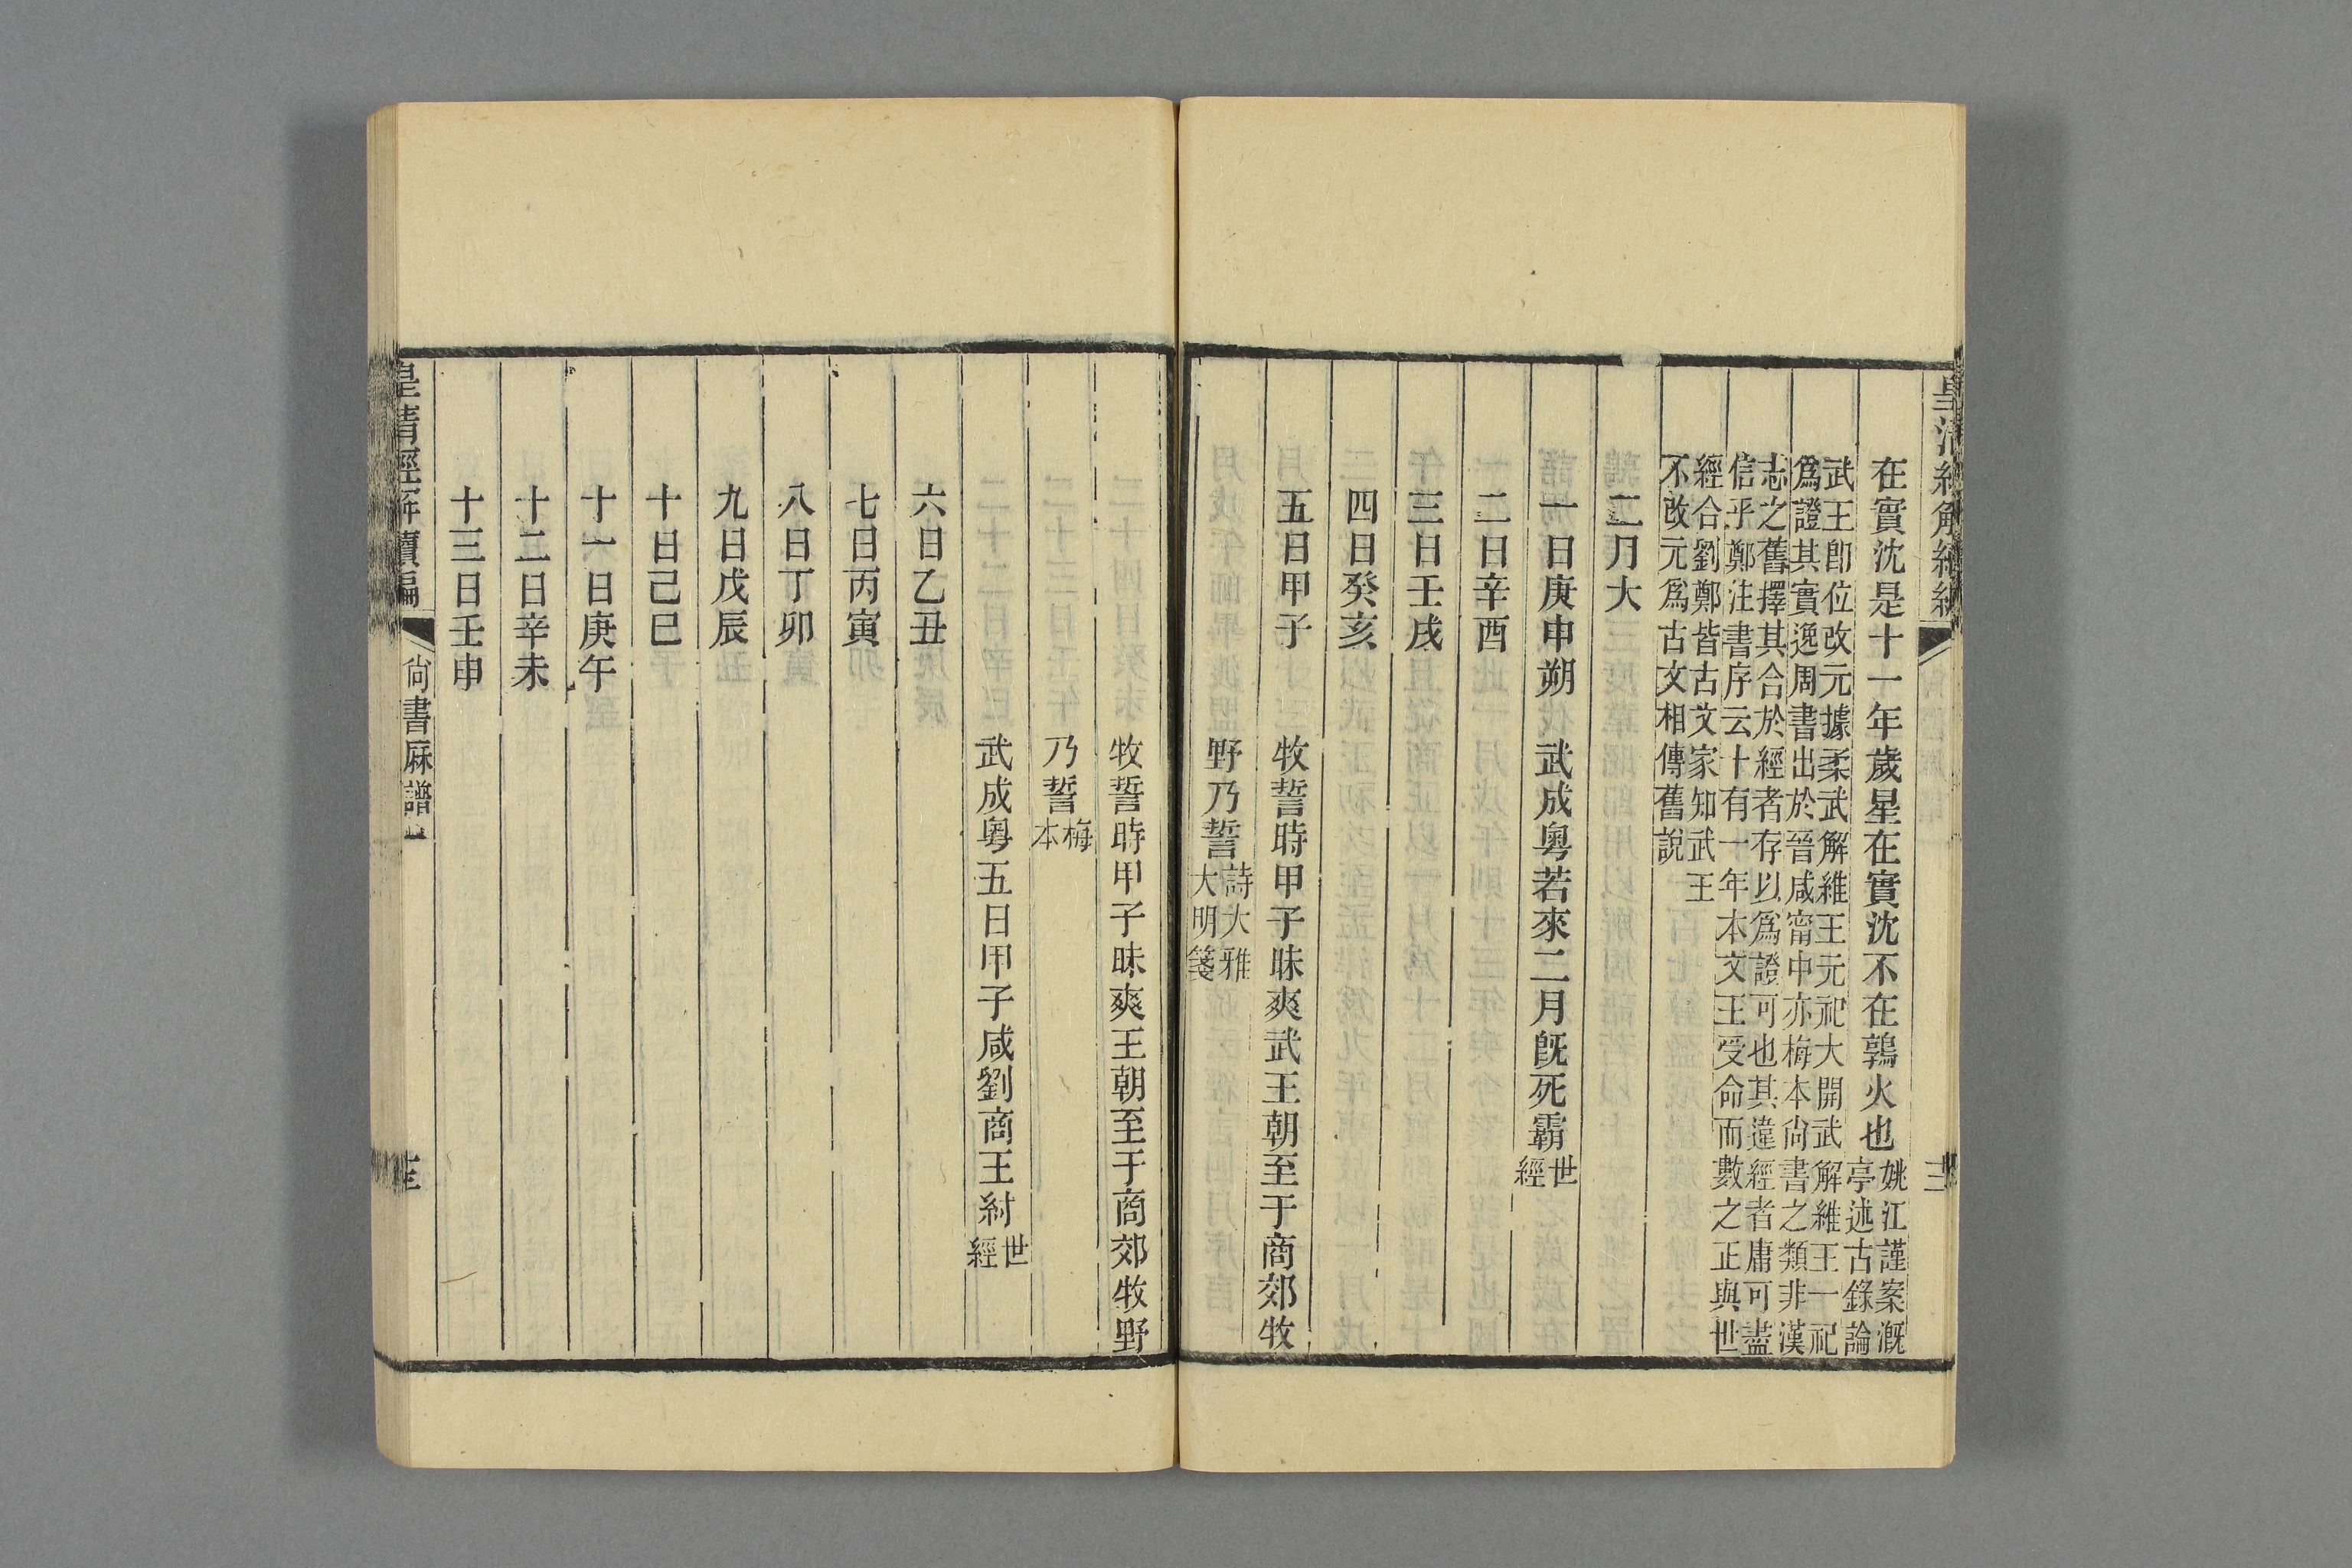 皇清經解續編
三
在實沈是十一年歲星在實沈不在鶉火也姚江謹案漑
亭述古錄論
武王卽位改元據柔武解維王元祀大開武解維王一祀
爲證其實逸周書出於晉咸甯中亦梅本尙書之類非漢
志之舊擇其合於經者存以爲證可也其違經者庸可盡
信乎鄭注書序云十有一年本文王受命而數之正與世
經合劉鄭皆古文家知武王
不改元爲古文相傳舊說
二月大
一日庚申朔　武成粵若來二月旣死霸世經
二日辛酉
三日壬戌
四日癸亥
五日甲子　牧誓時甲子昧爽武王朝至于商郊牧
野乃誓詩大雅
大明箋
牧誓時甲子昧爽王朝至于商郊牧野
乃誓梅本
武成粵五日甲子咸劉商王紂世經
六日乙丑
七日丙寅
八日丁卯
九日戊辰
十日己巳
十一日庚午
十二日辛未
十三日壬申
皇清經解續編
尙書厤譜上